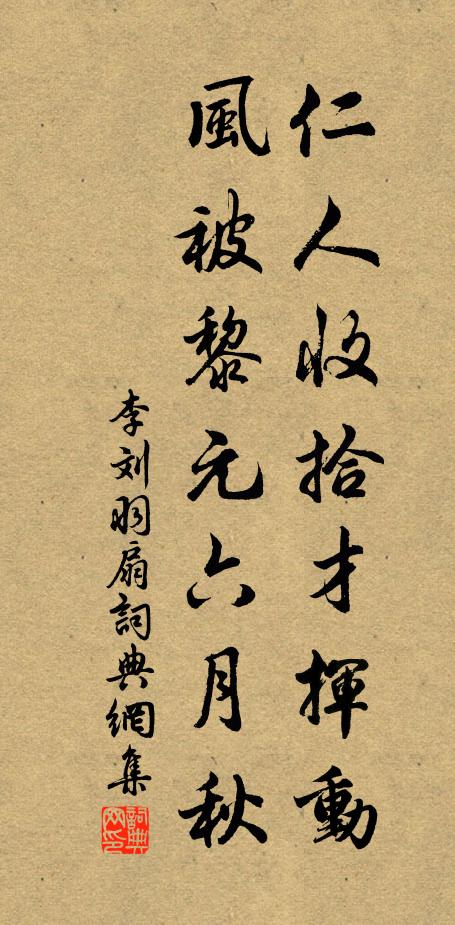 仁人收拾才揮動
風被黎元六月秋
李刘羽扇詞典網集
詞典網印